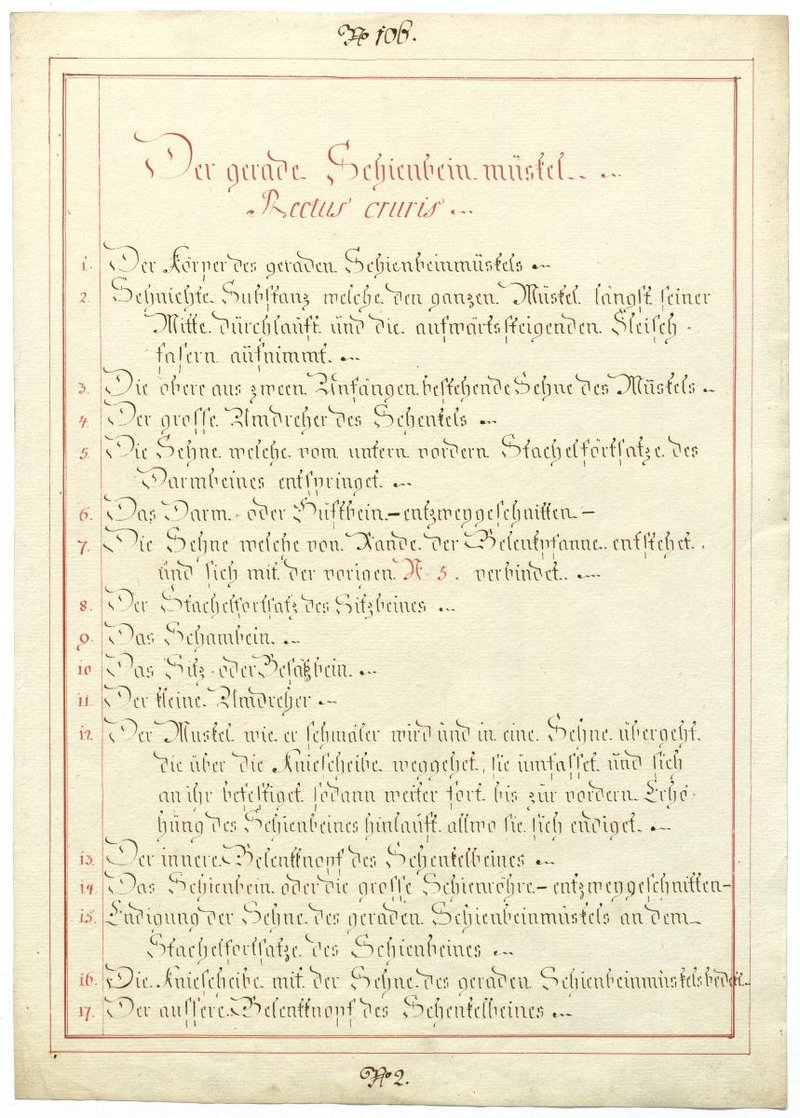 No 106.
Der gerade Schienbeinmüskel
Rectus cruris
1. Der Körper des geraden Schienbeinmüskels
2. Sehnichte Substanz welche den ganzen Müskel längst seiner
Mitte dürchlauft und die aufwärtssteigenden Fleisch-
fasern aüfnimmt.
3. Die obere aus zween Anfängen bestehende Sehne des Müskels
4. Der grosse Umdreher des Schenkels
5. Die Sehne welche vom untern vordern Stachelförtsatze des
Darmbeines entspringet.
6. Das Darm- oder Hüftbein - entzweygeschnitten -
7. Die Sehne welche von Rande der Gelenkpfanne entstehet,
und sich mit der vorigen N 5. verbindet.
8. Der Stachelfortsatz des Sitzbeines
9. Das Schambein.
10 Das Sitz- oder Gesäßbein.
11. Der kleine Umdreher
12. Der Muskel wie er schmäler wird und in eine Sehne übergeht.
die über die Kniescheibe weggehet, sie umfasset und sich
an ihr befestiget sodann weiter fort bis zür vordern Erhö-
hüng des Schienbeines hinlauft allwo sie sich endiget.
13. Der innere Gelenkknopf des Schenkelbeines
14. Das Schienbein oder die grosse Schienröhre - entzweygeschnitten -
15. Endigung der Sehne des geraden Schienbeinmüskels an dem
Stachelfortsatze des Schienbeines
16. Die Kniescheibe mit der Sehne des geraden Schienbeinmüskels bedekt
17. Der aussere Gelenkknopf des Schenkelbeines
No 2.